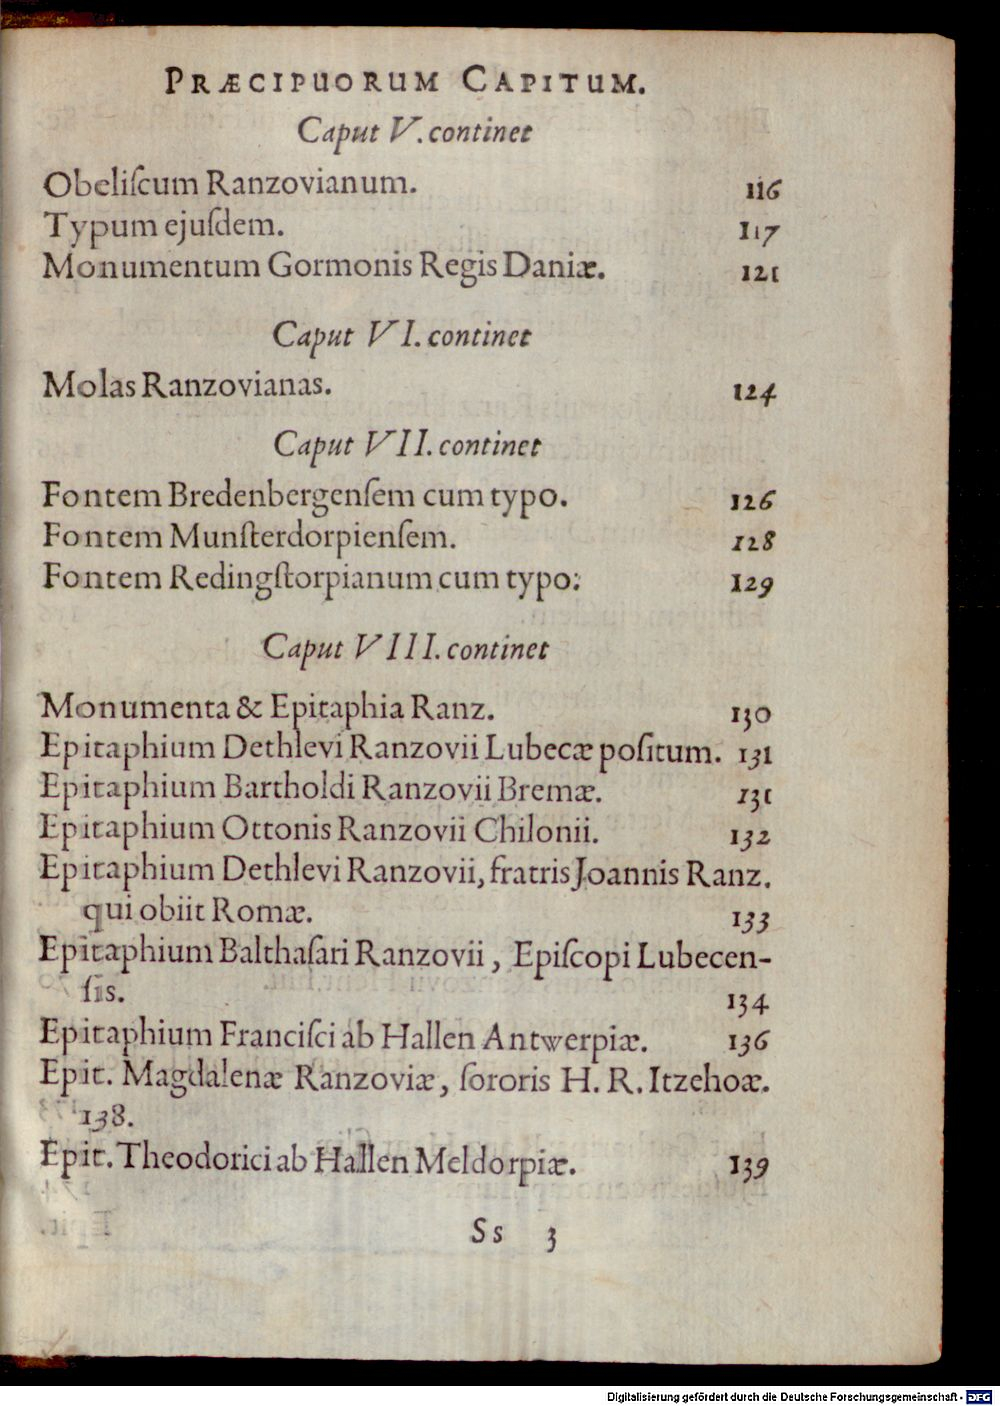 PRÆCIPUORUM CAPITUM.
Caput V. continet
Obeliſcum Ranzovianum. 116
Typum ejuſdem. 117
Monumentum Gormonis Regis Daniæ. 121
Caput VI. continet
Molas Ranzovianas. 124
Caput VII. continet
Fontem Bredenbergenſem cum typo. 126
Fontem Munſterdorpienſem. 128
Fontem Redingſtorpianum cum typo. 129
Caput VIII. continet
Monumenta & Epitaphia Ranz. 130
Epitaphium Dethlevi Ranzovii Lubecæ poſitum. 131
Epitaphium Bartholdi Ranzovii Bremæ. 131
Epitaphium Ottonis Ranzovii Chilonii. 132
Epitaphium Dethlevi Ranzovii, fratris Joannis Ranz.
qui obiit Romæ. 133
Epitaphium Balthaſari Ranzovii, Epiſcopi Lubecen-
ſis. 134
Epitaphium Franciſci ab Hallen Antwerpiæ. 136
Epit. Magdalenæ Ranzoviæ, ſororis H. R. Itzehoæ.
138.
Epit. Theodorici ab Hallen Meldorpiæ. 139
Ss 3
Digitalisierung gefördert durch die Deutsche Forschungsgemeinschaft - DFG